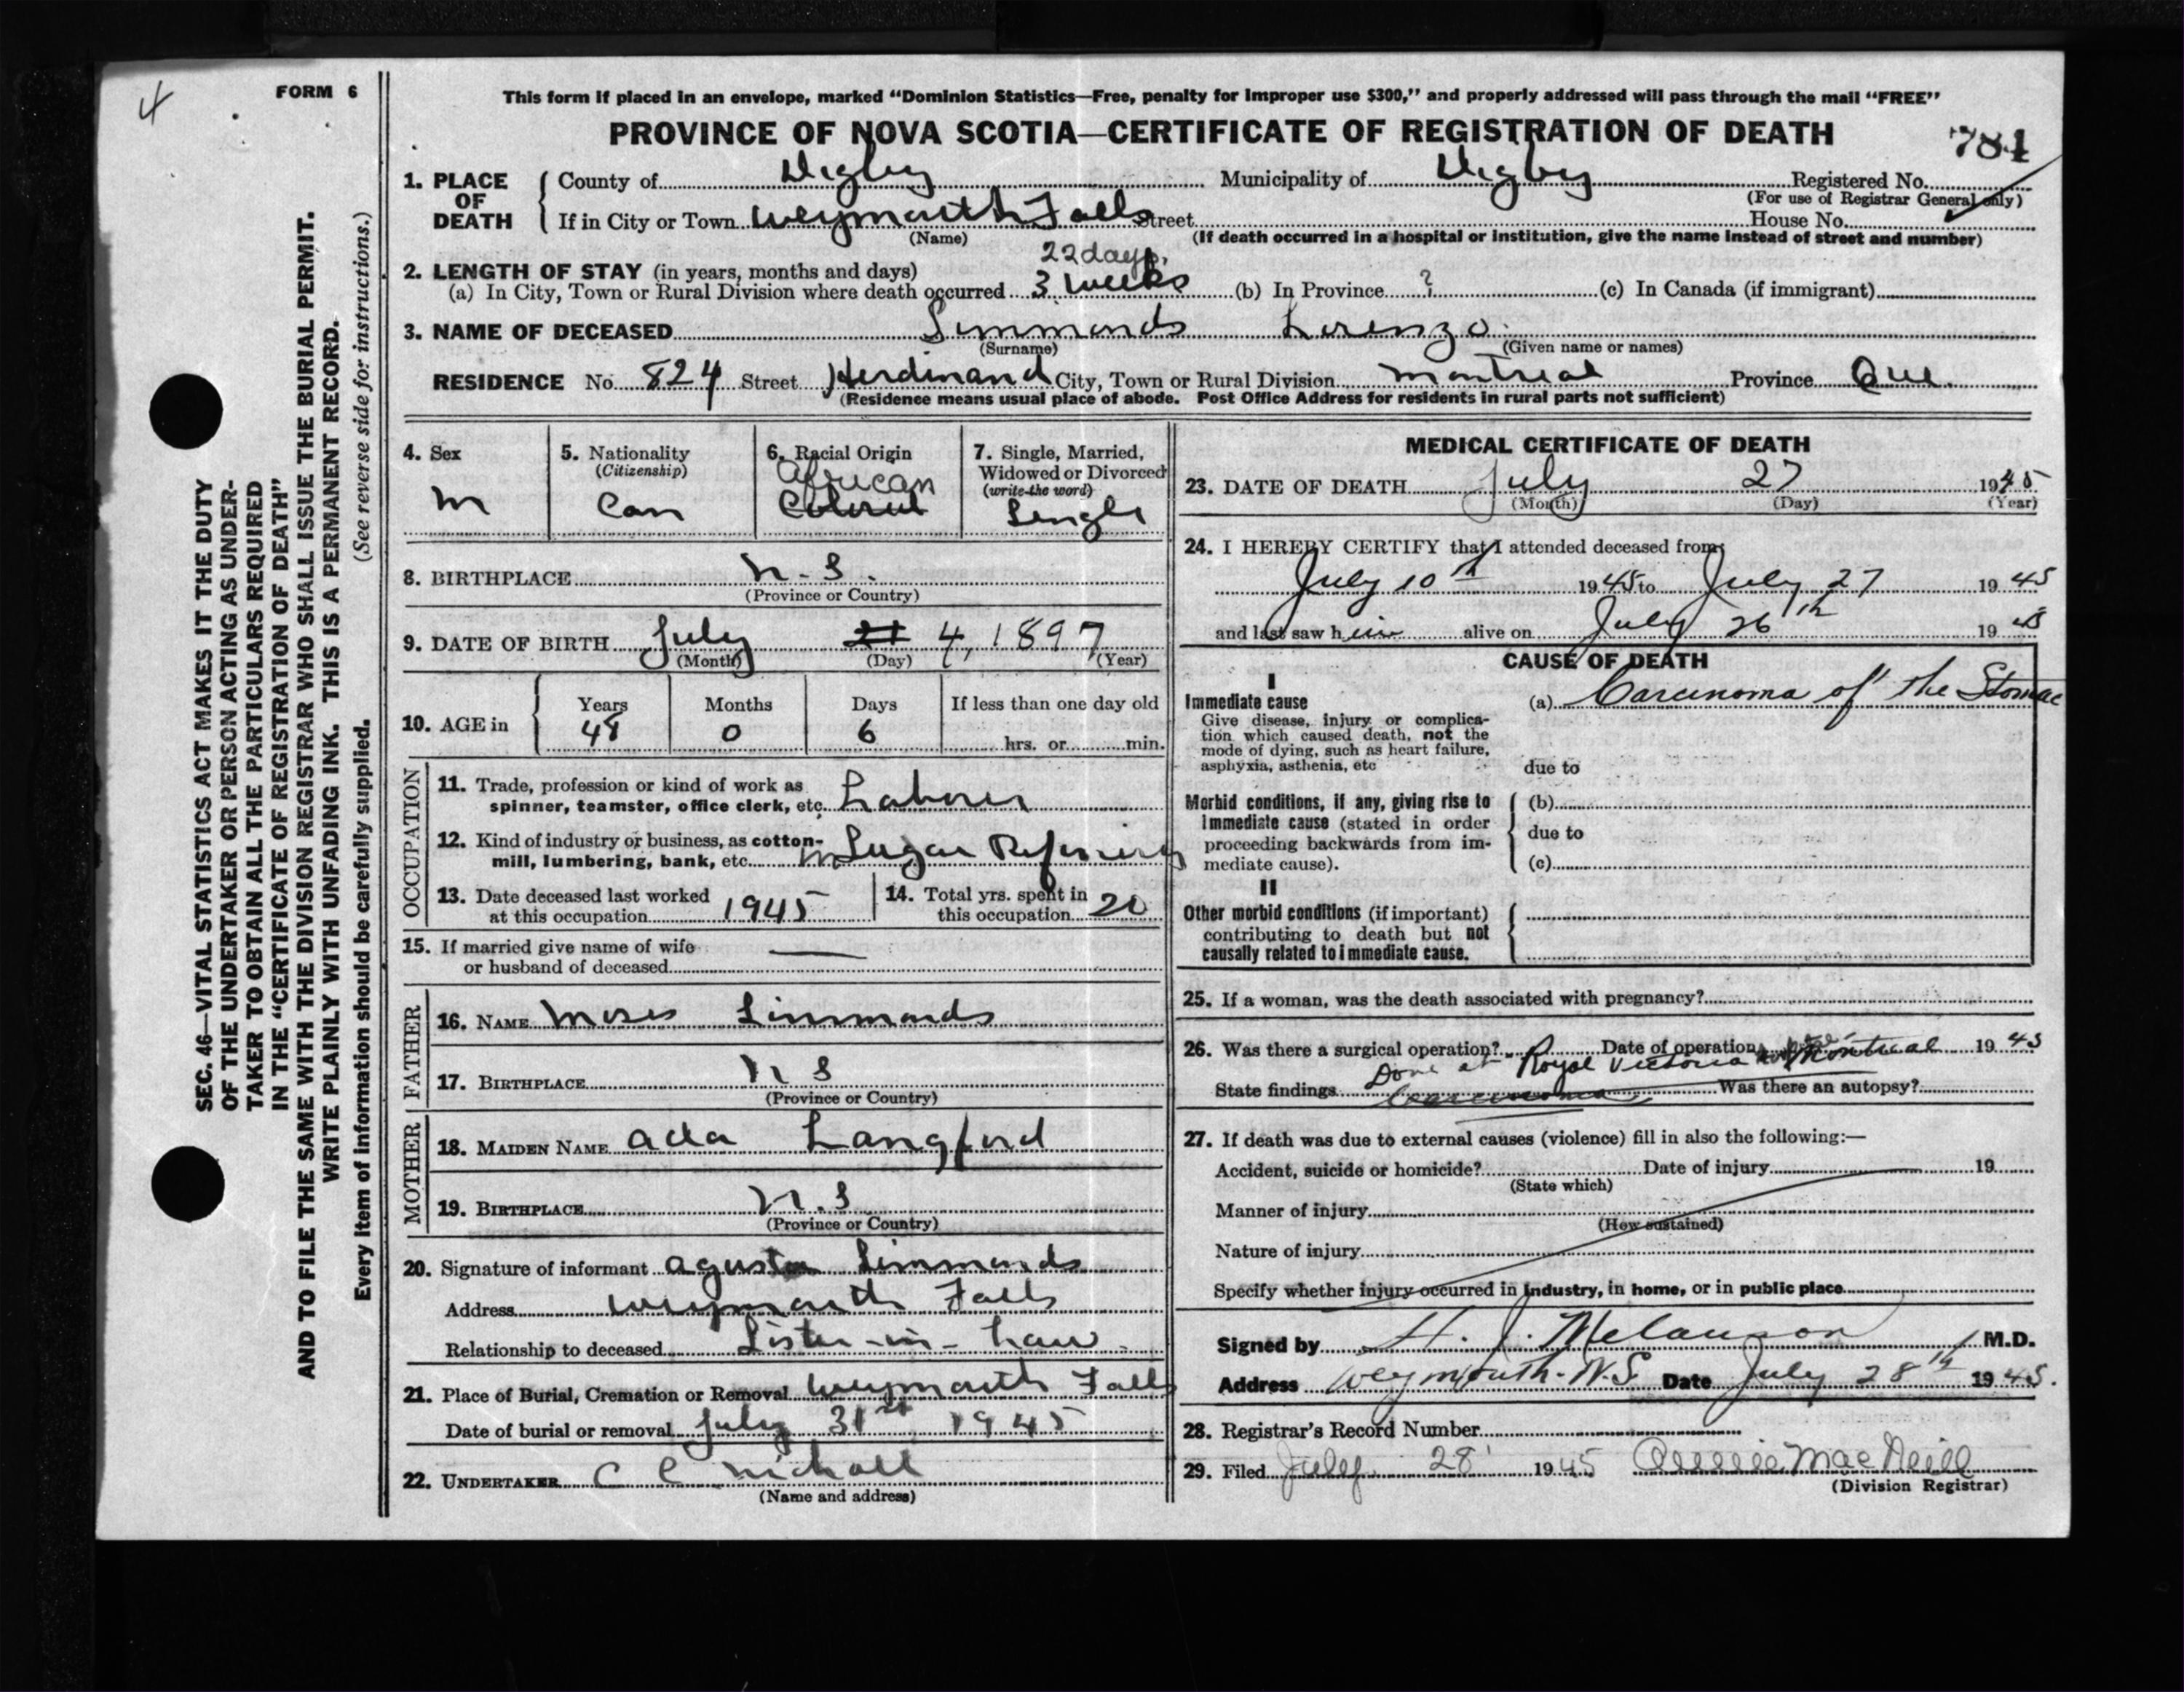 4
FORM 6
SEC. 46—VITAL STATISTICS ACT MAKES IT THE DUTY
OF THE UNDERTAKER OR PERSON ACTING AS UNDER-
TAKER TO OBTAIN ALL THE PARTICULARS REQUIRED
IN THE "CERTIFICATE OF REGISTRATION OF DEATH"
AND TO FILE THE SAME WITH THE DIVISION REGISTRAR WHO SHALL ISSUE THE BURIAL PERMIT.
WRITE PLAINLY WITH UNFADING INK. THIS IS A PERMANENT RECORD.
Every item of information should be carefully supplied. (See reverse side for instructions.)
This form if placed in an envelope, marked "Dominion Statistics—Free, penalty for improper use $300," and properly addressed will pass through the mail "FREE"
PROVINCE OF NOVA SCOTIA—CERTIFICATE OF REGISTRATION OF DEATH
784
1. PLACE OF DEATH County of Digby Municipality of Digby Registered No.
(For use of Registrar General only)
If in City or Town Weymouth Falls Street House No.
(Name) (If death occurred in a hospital or institution, give the name instead of street and number)
22 days.
2. LENGTH OF STAY (in years, months and days)
(a) In City, Town or Rural Division where death occurred 3 weeks (b) In Province ? (c) In Canada (if immigrant)
3. NAME OF DECEASED Simmonds Lorenzo.
(Surname) (Given name or names)
RESIDENCE No. 824 Street Ferdinand City, Town or Rural Division Montreal Province Que.
(Residence means usual place of abode. Post Office Address for residents in rural parts not sufficient)
4. Sex
M
5. Nationality
(Citizenship)
Can
6. Racial Origin
African
Colored
7. Single, Married,
Widowed or Divorced
(write the word)
Single
8. BIRTHPLACE N.S.
(Province or Country)
9. DATE OF BIRTH July 21 4, 1897
(Month) (Day) (Year)
10. AGE in Years Months Days If less than one day old
48 0 6 hrs. or min.
OCCUPATION
11. Trade, profession or kind of work as
spinner, teamster, office clerk, etc. Laborer
12. Kind of industry or business, as cotton-
mill, lumbering, bank, etc. in Sugar Refinery
13. Date deceased last worked
at this occupation 1945
14. Total yrs. spent in
this occupation 20
15. If married give name of wife
or husband of deceased —
FATHER
16. NAME Moses Simmonds
17. BIRTHPLACE N S
(Province or Country)
MOTHER
18. MAIDEN NAME Ada Langford
19. BIRTHPLACE N.S
(Province or Country)
20. Signature of informant Agusta Simmonds
Address Weymouth Falls
Relationship to deceased Sister-in-Law.
21. Place of Burial, Cremation or Removal Weymouth Falls
Date of burial or removal July 31st 1945
22. UNDERTAKER C C Nichall
(Name and address)
MEDICAL CERTIFICATE OF DEATH
23. DATE OF DEATH July 27 1945
(Month) (Day) (Year)
24. I HEREBY CERTIFY that I attended deceased from:
July 10th 1945 to July 27 1945
and last saw him alive on July 26th 1945
CAUSE OF DEATH
I
Immediate cause
Give disease, injury or complica-
tion which caused death, not the
mode of dying, such as heart failure,
asphyxia, asthenia, etc
(a) Carcinoma of the Stomac
due to
Morbid conditions, if any, giving rise to
immediate cause (stated in order
proceeding backwards from im-
mediate cause).
(b)
due to
(c)
II
Other morbid conditions (if important)
contributing to death but not
causally related to immediate cause.
25. If a woman, was the death associated with pregnancy?
26. Was there a surgical operation? Date of operation 1945
Done at Royal Victoria Montreal
State findings Carcinoma Was there an autopsy?
27. If death was due to external causes (violence) fill in also the following:—
Accident, suicide or homicide? Date of injury 19
(State which)
Manner of injury
(How sustained)
Nature of injury
Specify whether injury occurred in industry, in home, or in public place
Signed by H. J. Melanson M.D.
Address Weymouth. N.S. Date July 28th 1945.
28. Registrar's Record Number
29. Filed July 28 1945 MacNeill
(Division Registrar)